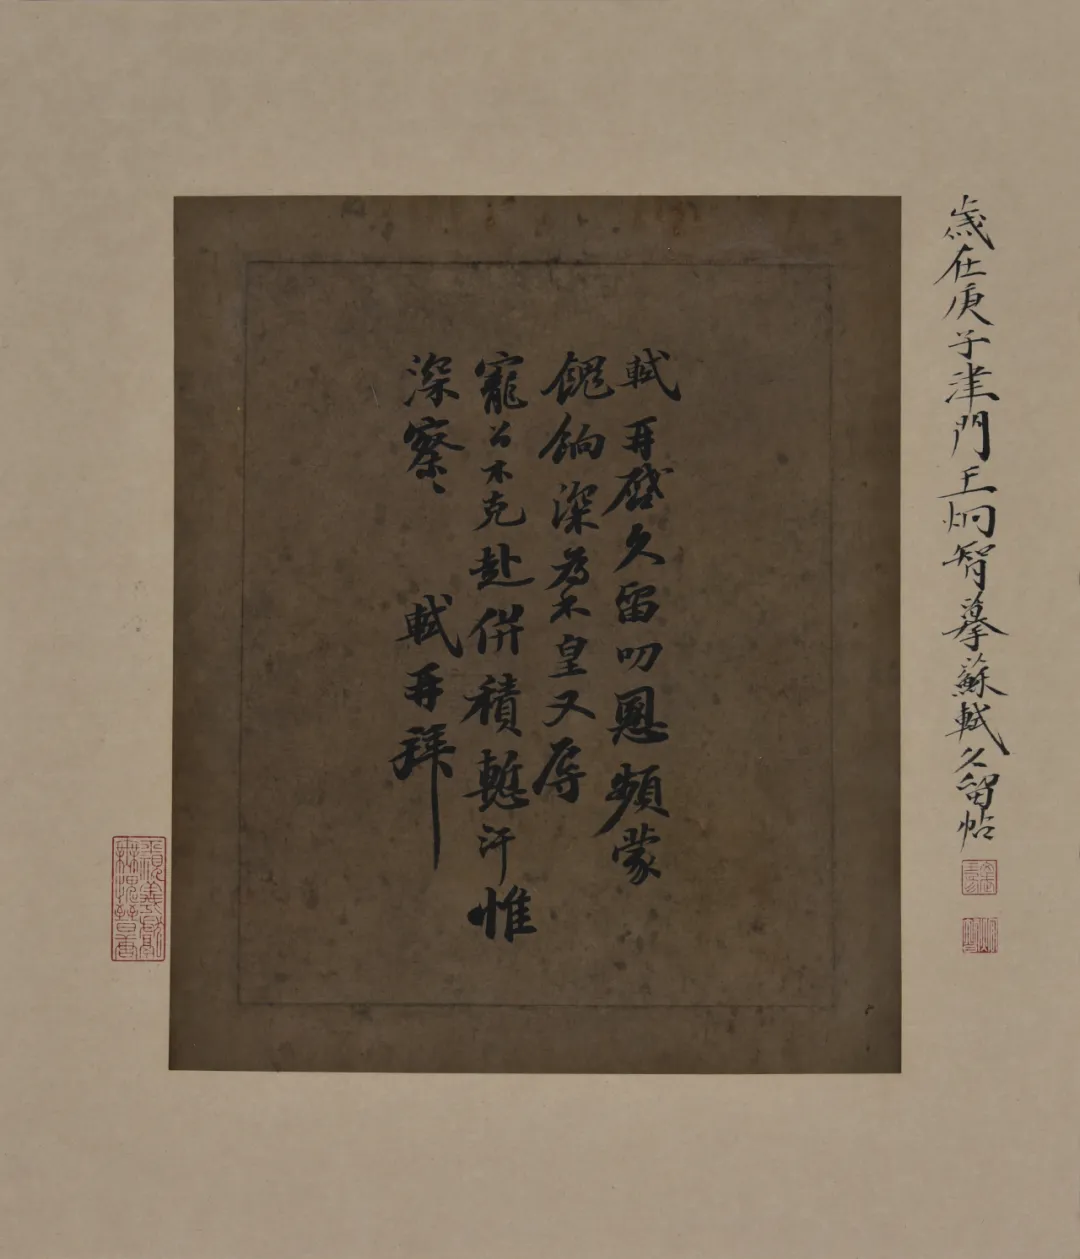 歲在庚子津門王炯智摹蘇軾久留帖
軾再啓久留叨恩頻蒙
餽餉深為不皇又辱
寵召不克赴併積慙汗惟
深察〻 軾再拜